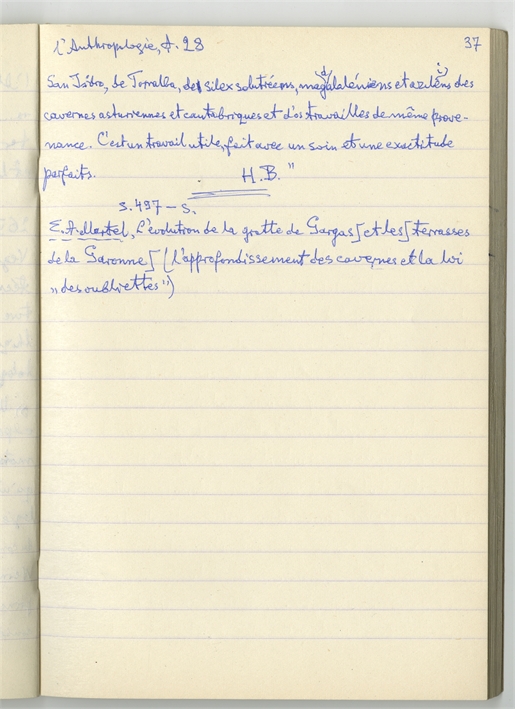 l'Anthropologie, t. 28
37
San Isidro, de Torralba, des silex solutréens, magdaléniens et aziliens des
cavernes asturiennes et cantabriques et d'os travaillés de même prove-
nance. C'est un travail utile, fait avec un soin et une exactitude
parfaits. H.B. "
S. 497 – S.
E. A. Martel, L'évolution de la grotte de Gargas [et les] terrasses
de la Garonne] (L'approfondissement des cavernes et la loi
„des oubliettes")